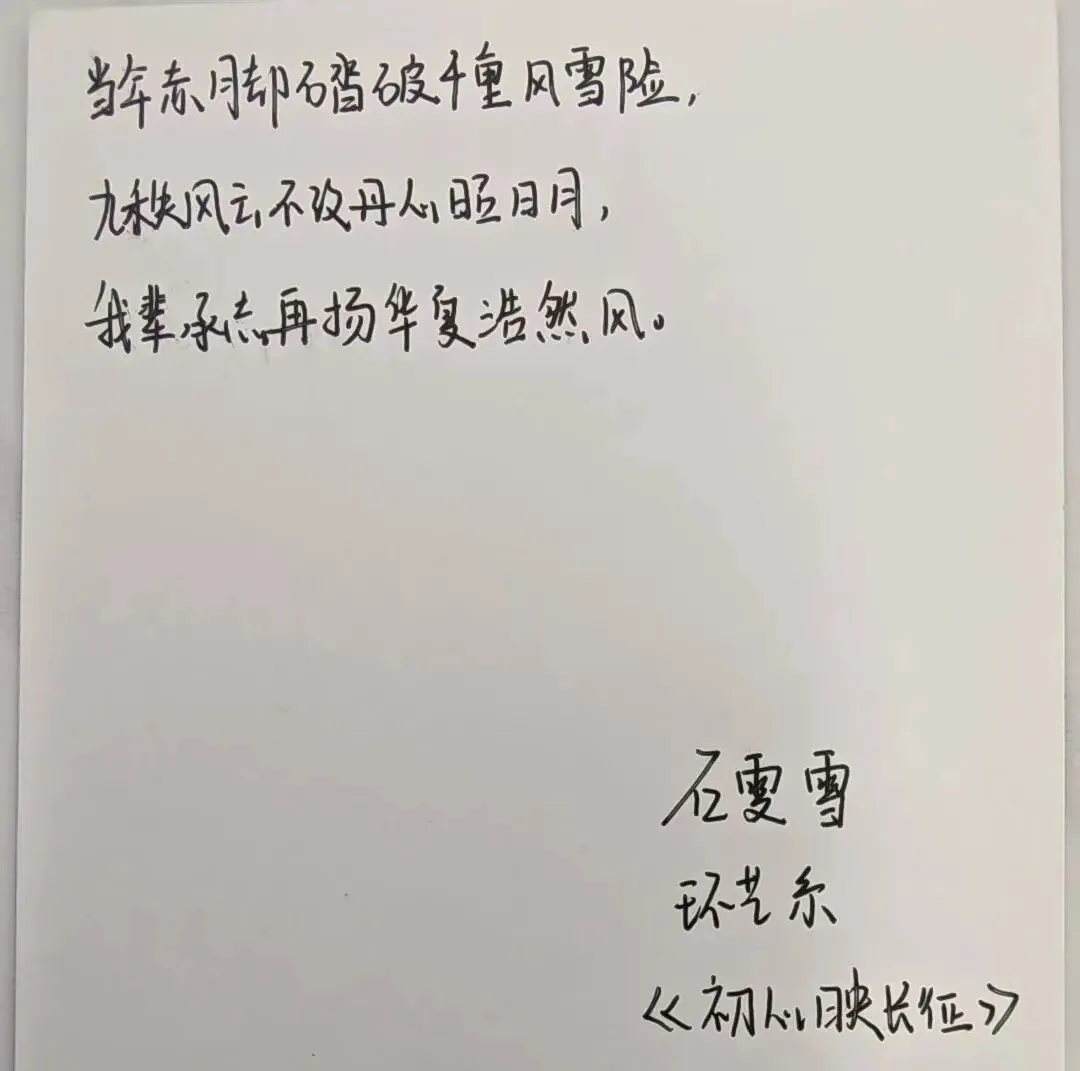 当年赤脚踏破千重风雪险,
九秩风云不改丹心昭日月,
我辈承志再扬华夏浩然风。
石雯雪
环艺系
《初心映长征》